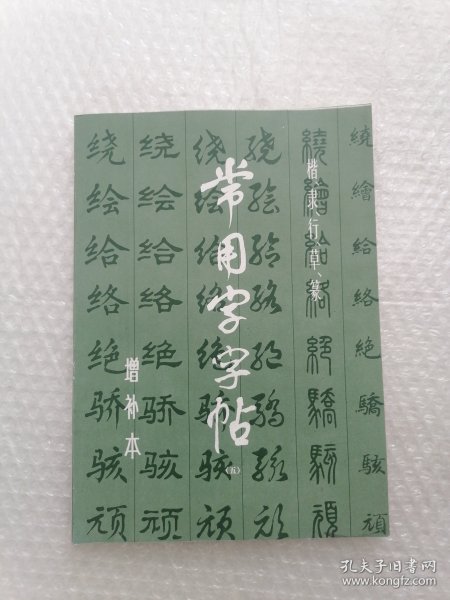 楷、隶、行、草、篆
常用字字帖
(五)
增补本
绕 绕 绕 绕 繞 繞
绘 绘 绘 绘 繪 繪
给 给 给 给 給 給
络 络 络 络 絡 絡
绝 绝 绝 绝 絕 絶
骄 骄 骄 骄 驕 驕
骇 骇 骇 骇 駭 駭
顽 顽 顽 顽 頑 頑
孔夫子旧书网
www.kongfz.com